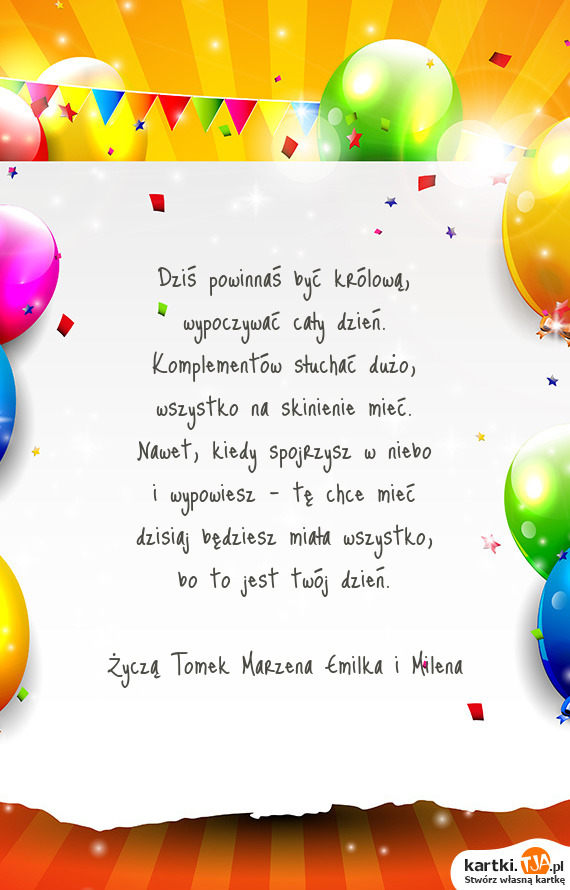 Dziś powinnaś być królową,
wypoczywać cały dzień.
Komplementów słuchać dużo,
wszystko na skinienie mieć.
Nawet, kiedy spojrzysz w niebo
i wypowiesz - tę chce mieć
dzisiaj będziesz miała wszystko,
bo to jest twój dzień.
Życzą Tomek Marzena Emilka i Milena
kartki.TJA.pl
Stwórz własną kartkę